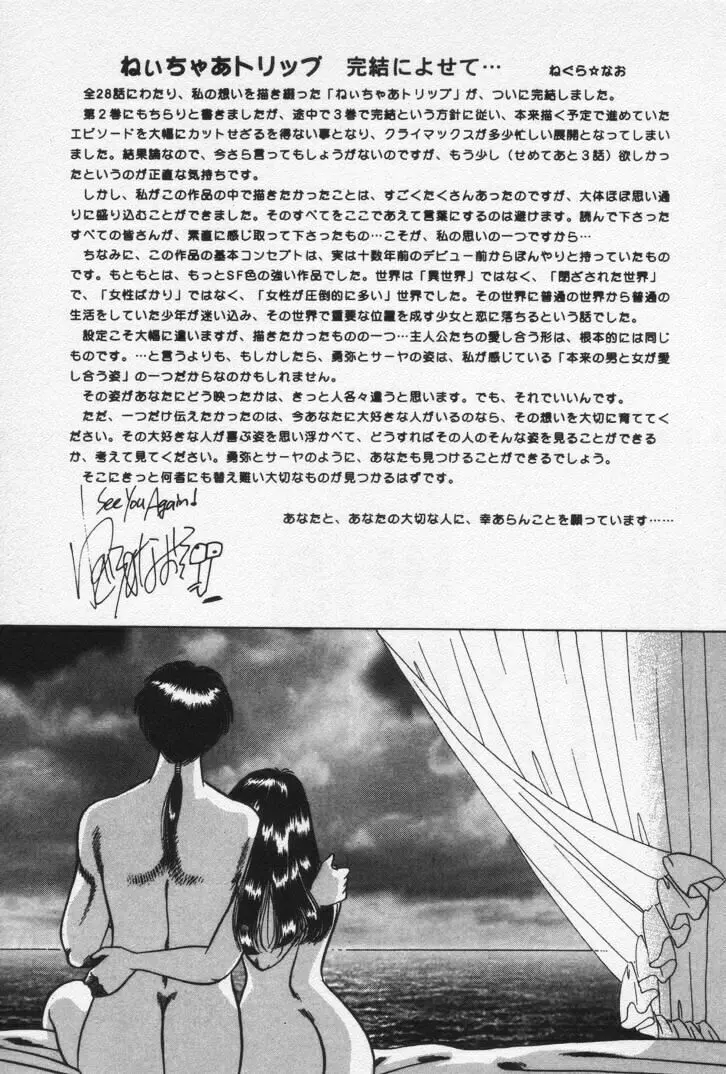 ねぃちゃあトリップ 完結によせて… ねぐら☆なお
全28話にわたり、私の想いを描き綴った「ねぃちゃあトリップ」が、ついに完結しました。
第2巻にもちらりと書きましたが、途中で3巻で完結という方針に従い、本来描く予定で進めていた
エピソードを大幅にカットせざるを得ない事となり、クライマックスが多少忙しい展開となってしまい
ました。結果論なので、今さら言ってもしょうがないのですが、もう少し(せめてあと3話)欲しかっ
たというのが正直な気持ちです。
しかし、私がこの作品の中で描きたかったことは、すごくたくさんあったのですが、大体ほぼ思い通
りに盛り込むことができました。そのすべてをここであえて言葉にするのは避けます。読んで下さった
すべての皆さんが、素直に感じ取って下さったもの…こそが、私の思いの一つですから…
ちなみに、この作品の基本コンセプトは、実は十数年前のデビュー前からぼんやりと持っていたもの
です。もともとは、もっとSF色の強い作品でした。世界は「異世界」ではなく、「閉ざされた世界」
で、「女性ばかり」ではなく、「女性が圧倒的に多い」世界でした。その世界に普通の世界から普通の
生活をしていた少年が迷い込み、その世界で重要な位置を成す少女と恋に落ちるという話でした。
設定こそ大幅に違いますが、描きたかったものの一つ…主人公たちの愛し合う形は、根本的には同じ
ものです。…と言うよりも、もしかしたら、勇弥とサーヤの姿は、私が感じている「本来の男と女が愛
し合う姿」の一つだからなのかもしれません。
その姿があなたにどう映ったかは、きっと人各々違うと思います。でも、それでいいんです。
ただ、一つだけ伝えたかったのは、今あなたに大好きな人がいるのなら、その想いを大切に育ててく
ださい。その大好きな人が喜ぶ姿を思い浮かべて、どうすればその人のそんな姿を見ることができる
か、考えて見てください。勇弥とサーヤのように、あなたも見つけることができるでしょう。
そこにきっと何者にも替え難い大切なものが見つかるはずです。
I See You Again!
あなたと、あなたの大切な人に、幸あらんことを願っています……